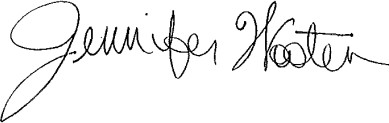 Jennifer Wooten